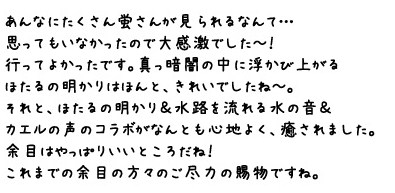 あんなにたくさん蛍さんが見られるなんて…
思ってもいなかったので大感激でした～!
行ってよかったです。真っ暗闇の中に浮かび上がる
ほたるの明かりはほんと、きれいでしたね～。
それと、ほたるの明かり&水路を流れる水の音&
カエルの声のコラボがなんとも心地よく、癒されました。
余目はやっぱりいいところだね!
これまでの余目の方々のご尽力の賜物ですね。